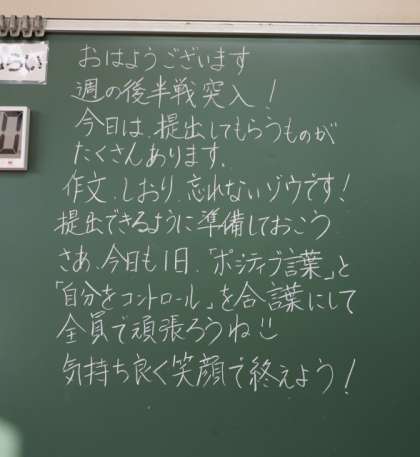 らい
おはようございます
週の後半戦突入！
今日は、提出してもらうものが
たくさんあります。
作文、しおり、忘れないゾウです！
提出できるように準備しておこう
さあ、今日も1日、「ポジティブ言葉」と
「自分をコントロール」を合言葉にして
全員で頑張ろうね
気持ち良く笑顔で終えよう！